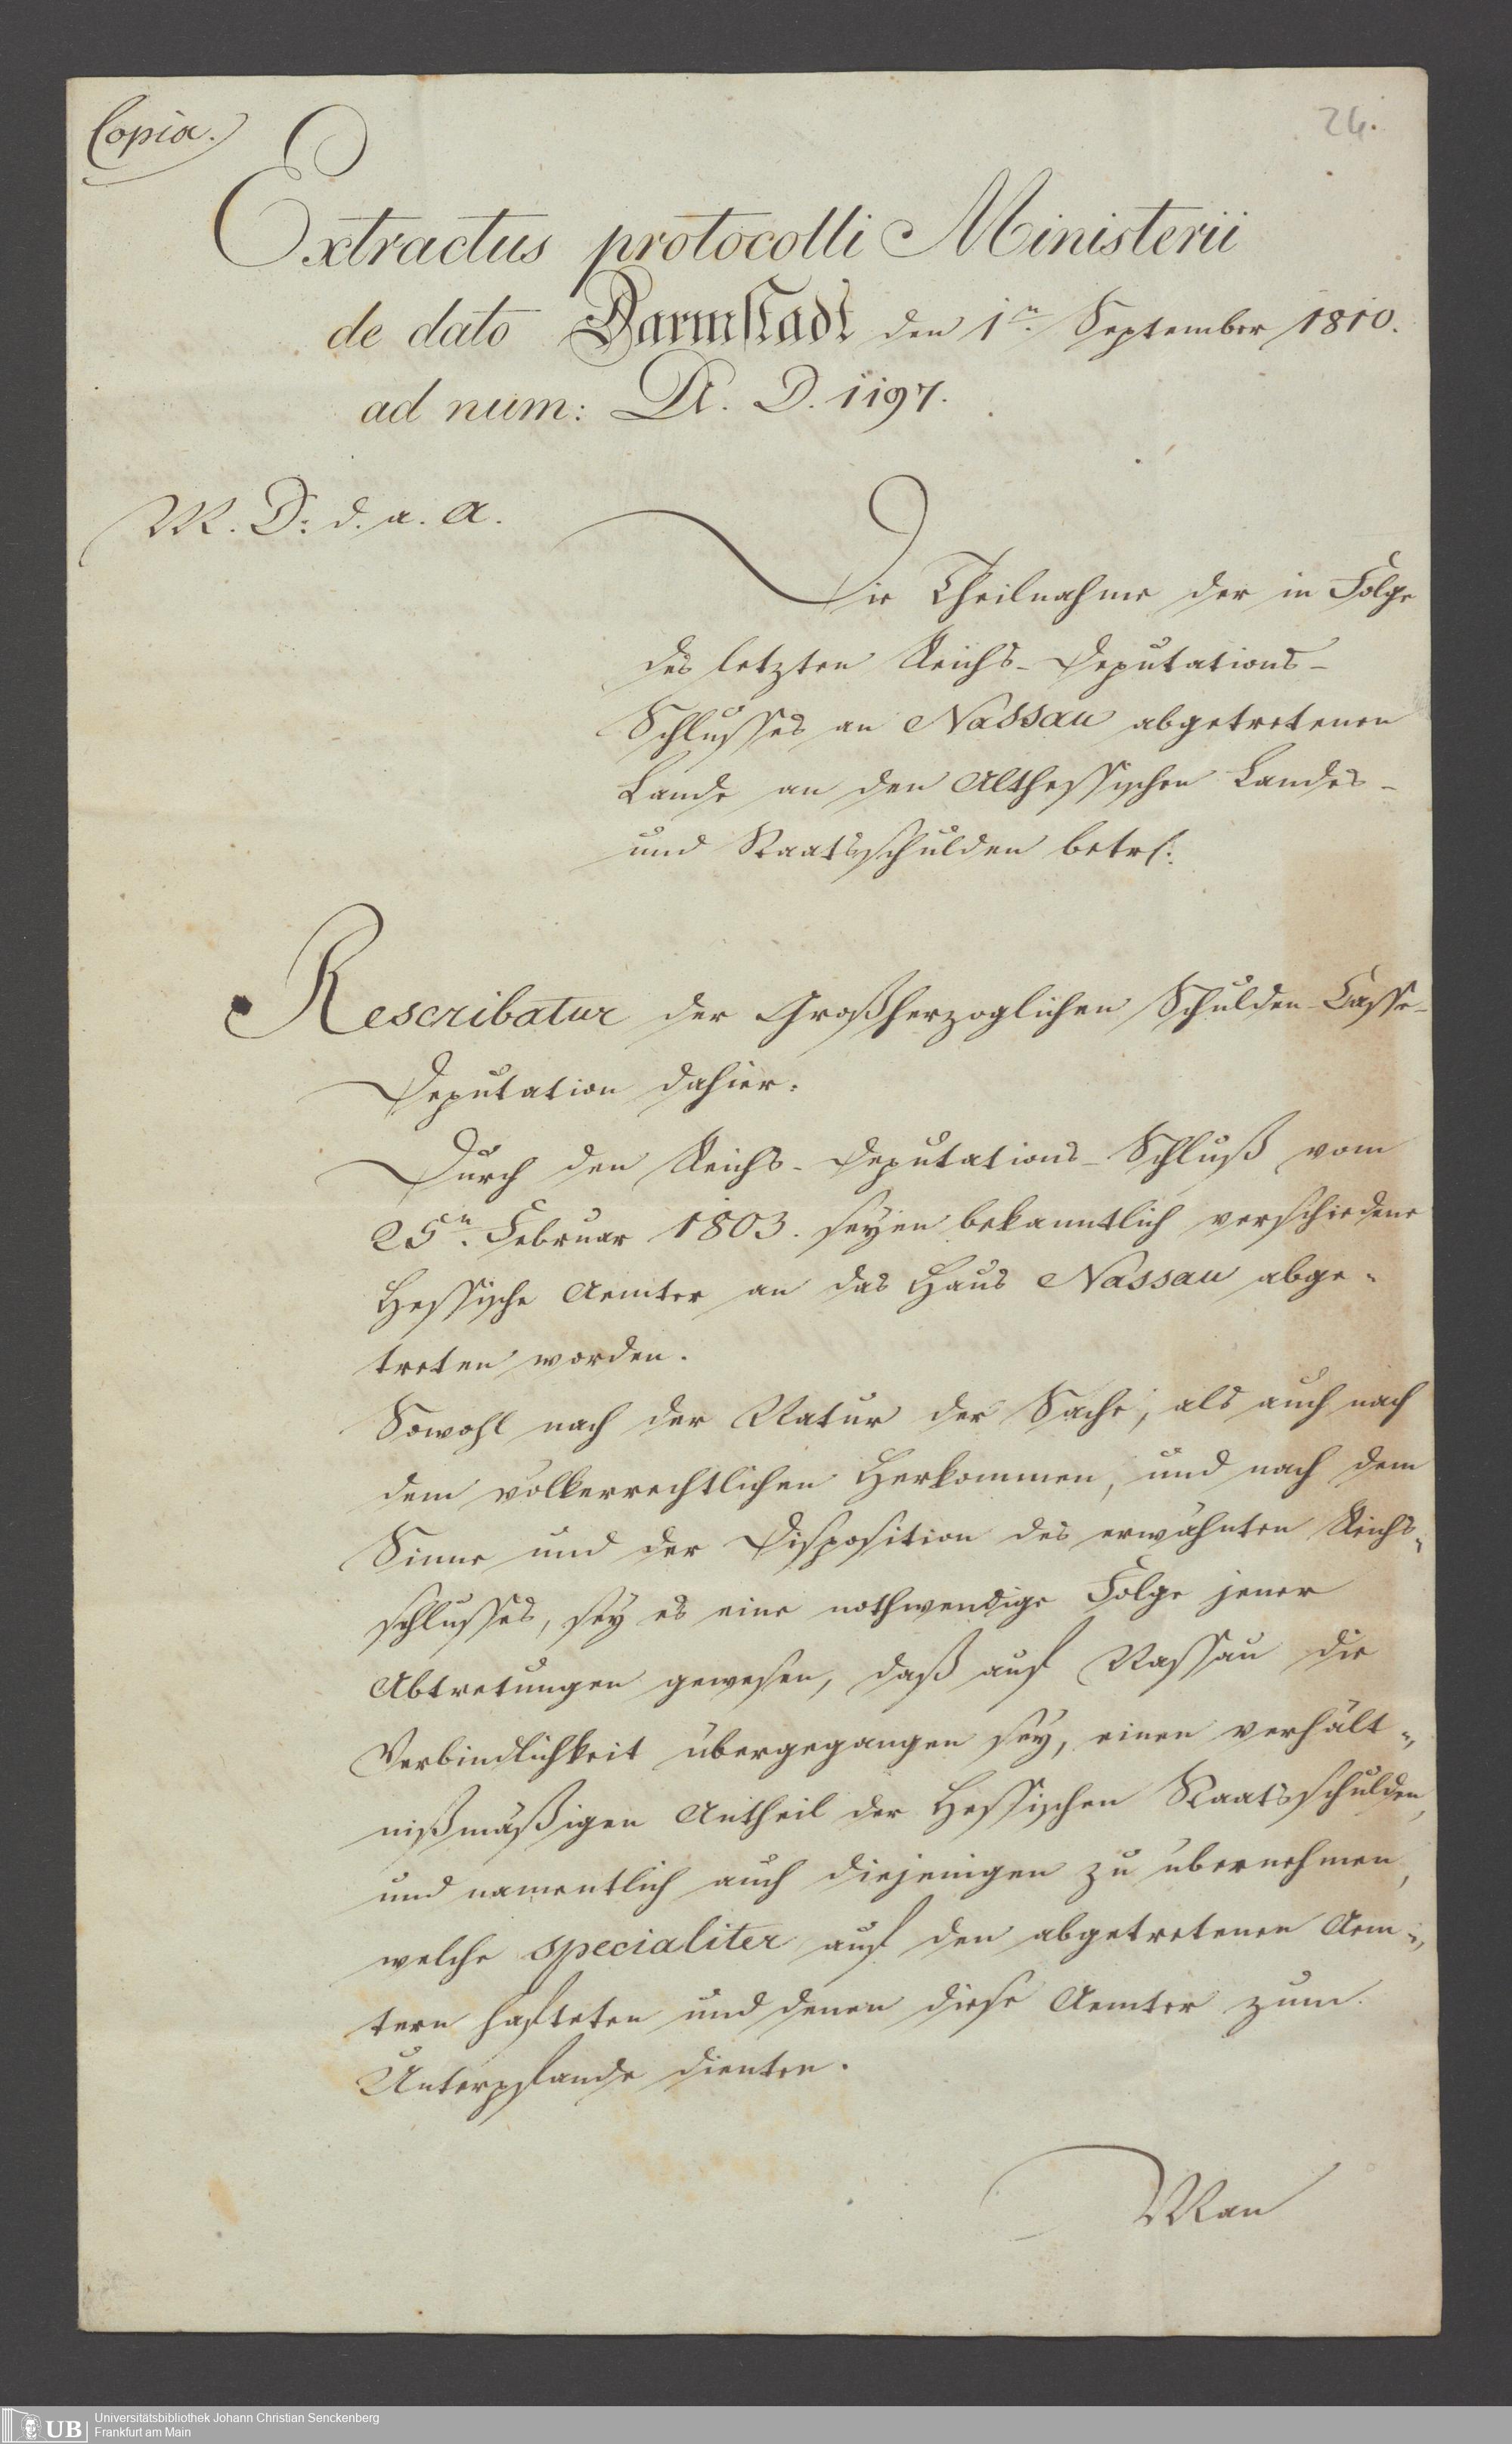 Copia.
24.
Extractus protocolli Ministerii
de dato Darmstadt den 1n. September 1810.
ad num: A. D. 1197.
M. D: d. a. A.
Die Theilnahme der in Folge
des letzten Reichs-Deputations-
Schlusses an Nassau abgetretenen
Lande an den Althessischen Landes-
und Staatsschulden betrf:
Rescribatur der Großherzoglichen Schulden-Casse-
Deputation dahier.
Durch den Reichs-Deputations-Schluß vom
25n. Februar 1803. seyen bekanntlich verschiedene
Hessische Aemter an das Haus Nassau abge-
treten worden.
Sowohl nach der Natur der Sache, als auch nach
dem völkerrechtlichen Herkommen, und nach dem
Sinne und der Disposition des erwähnten Reichs-
schlusses, sey es eine nothwendige Folge jener
Abtretungen gewesen, daß auf Nassau die
Verbindlichkeit übergegangen sey, einen verhält-
nißmäßigen Antheil der Hessischen Staatsschulden,
und namentlich auch diejenigen zu übernehmen,
welche specialiter auf den abgetretenen Aem-
tern hafteten und denen diese Aemter zum
Unterpfande dienten.
Man
UB
Universitätsbibliothek Johann Christian Senckenberg
Frankfurt am Main